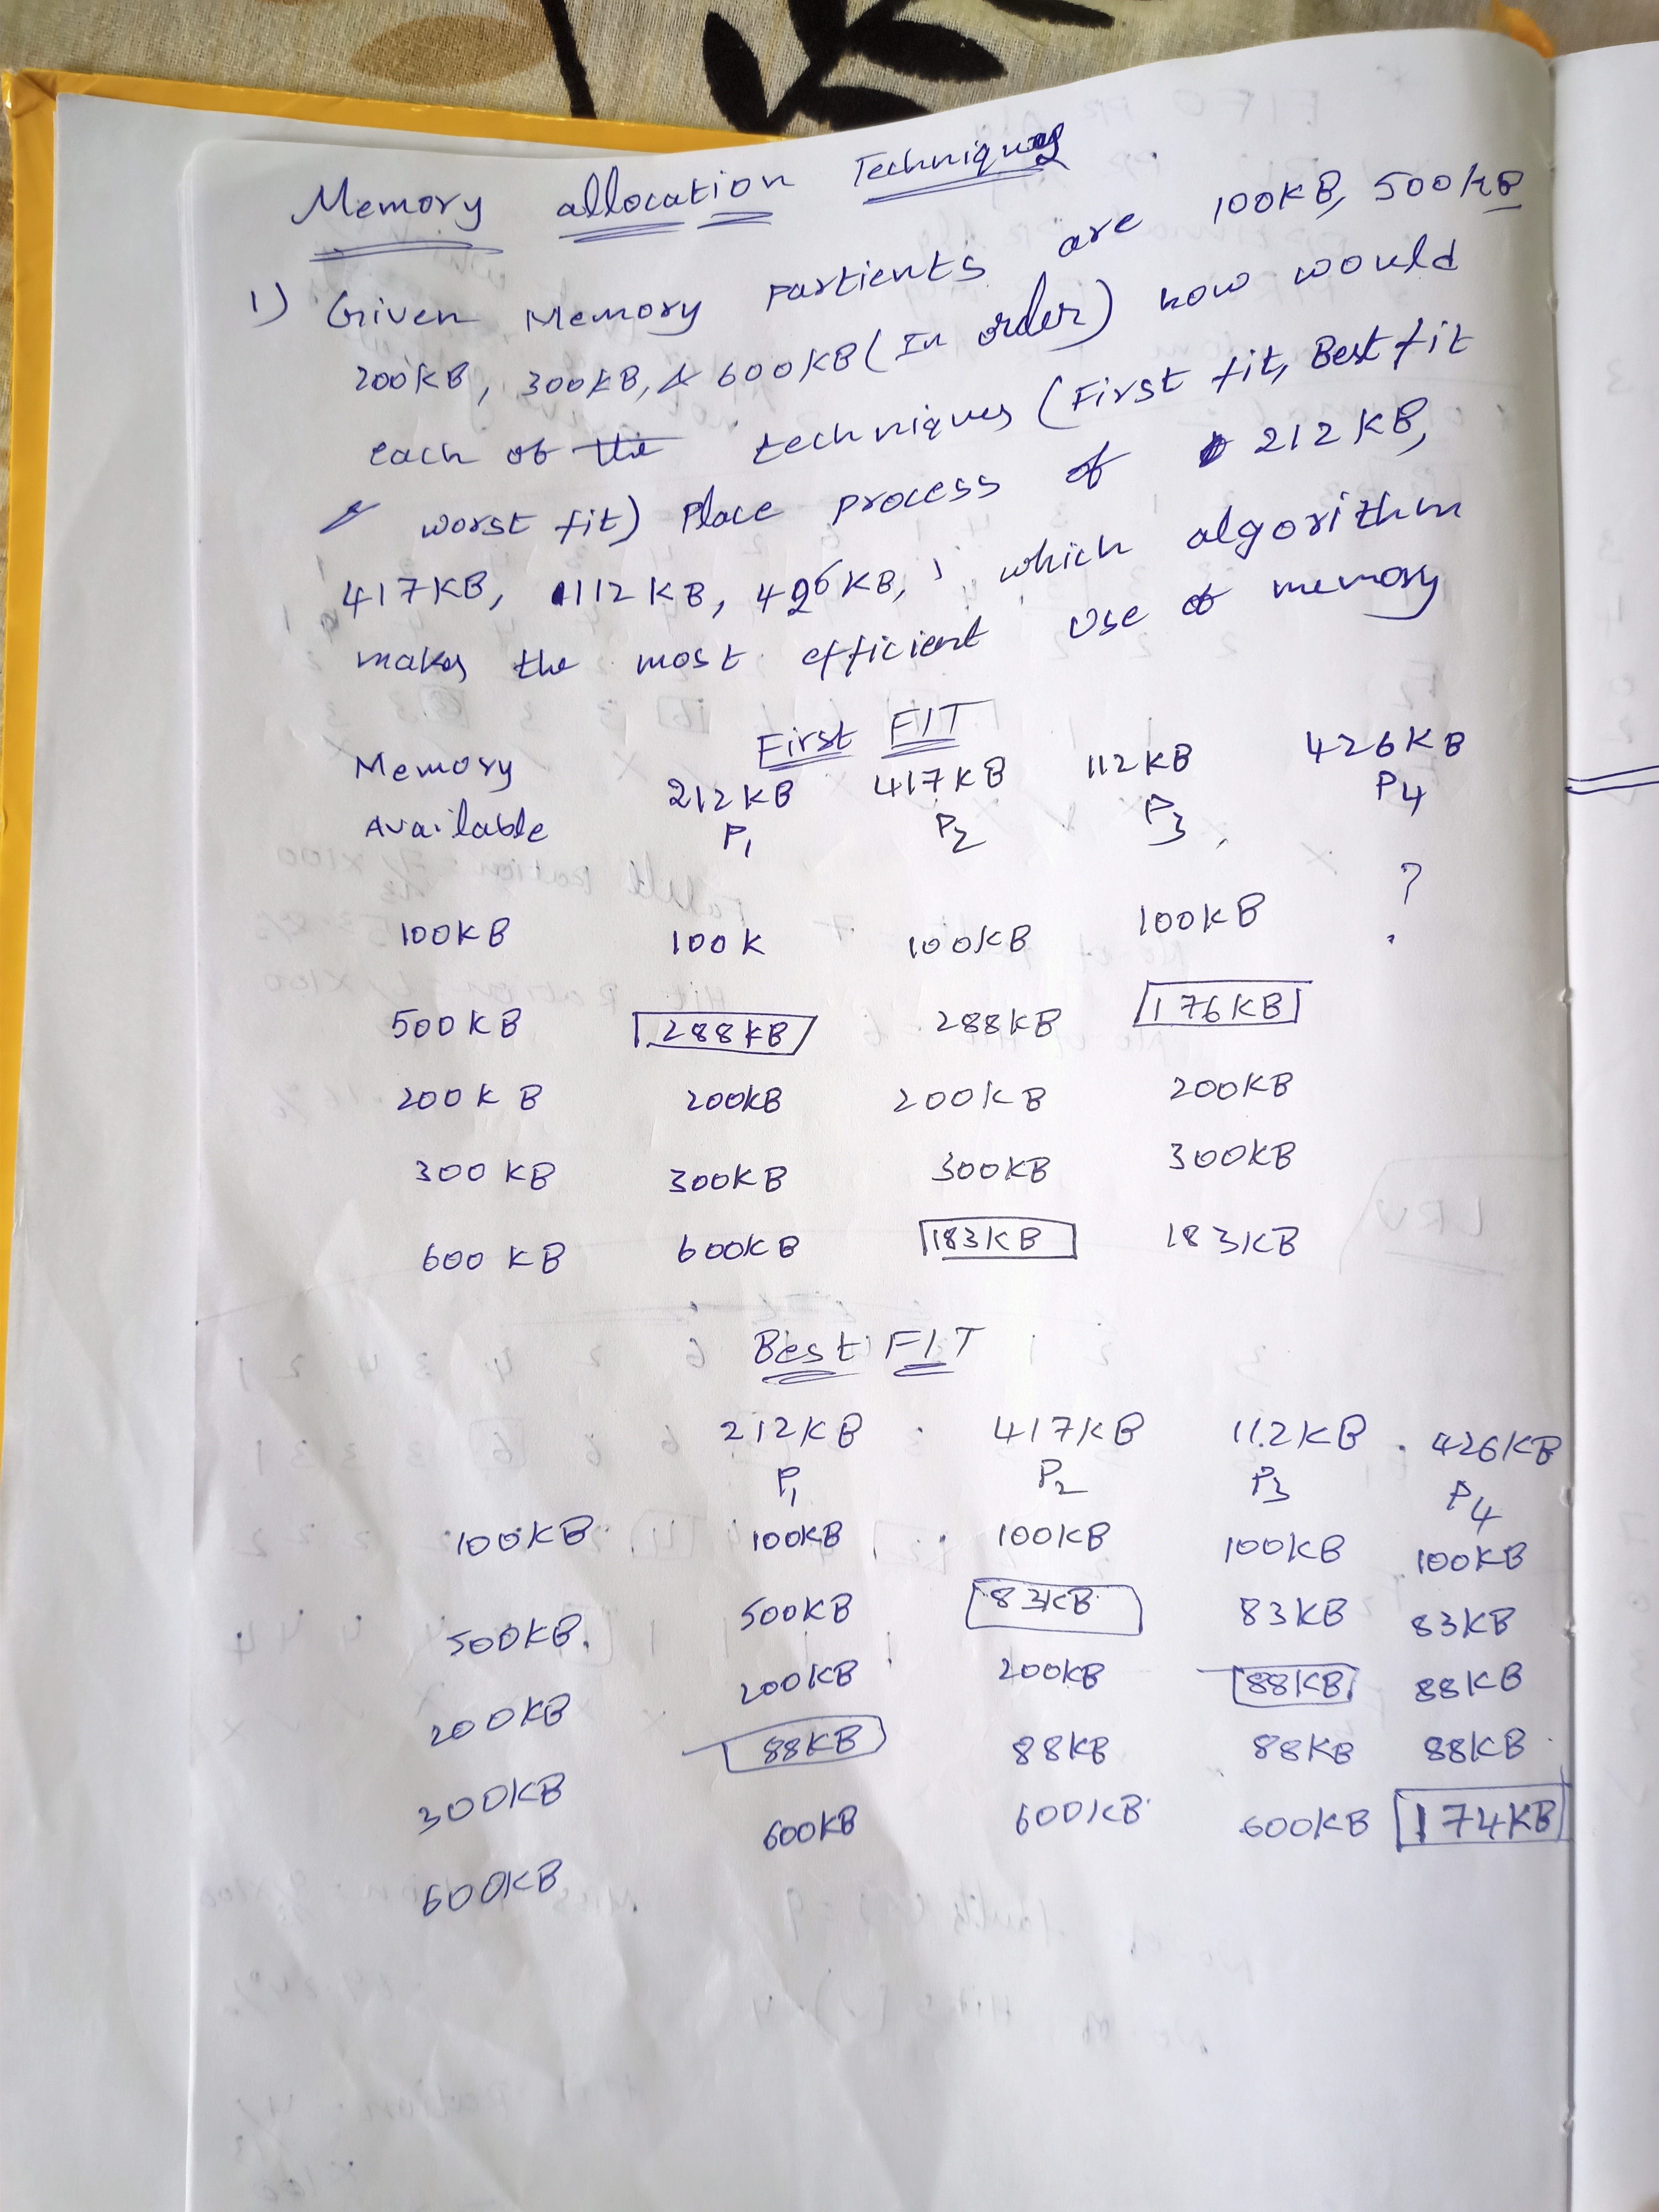 Memory allocation Techniques
1) Given Memory partients are 100KB, 500KB
200KB, 300KB, & 600KB (In order) how would
each of the techniques (First fit, Best fit
& worst fit) Place process of 212KB,
417KB, 112KB, 426KB, which algorithm
makes the most efficient use of memory
First FIT
Memory 212KB 417KB 112KB 426KB
Available P1 P2 P3 P4
100KB 100K 100KB 100KB ?
500KB 288KB 288KB 176KB
200KB 200KB 200KB 200KB
300KB 300KB 300KB 300KB
600KB 600KB 183KB 183KB
Best FIT
212KB 417KB 112KB 426KB
P1 P2 P3 P4
100KB 100KB 100KB 100KB 100KB
500KB. 500KB 83KB 83KB 83KB
200KB 200KB 200KB 88KB 88KB
300KB 88KB 88KB 88KB 88KB
600KB 600KB 600KB 600KB 174KB